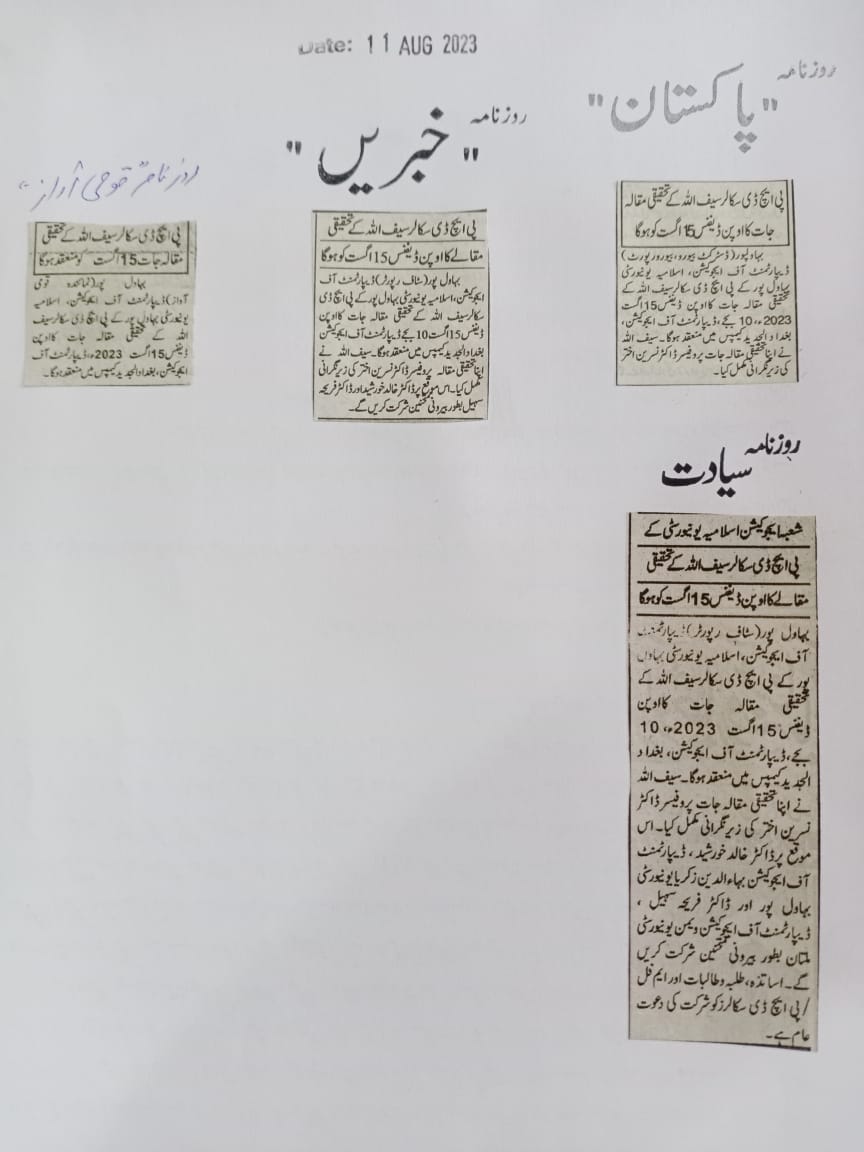 Date: 11 AUG 2023
روزنامہ
"پاکستان"
پی ایچ ڈی سکالر سیف اللہ کے تحقیقی مقالہ
جات کا اوپن ڈیفنس 15 اگست کو ہوگا
بہاولپور (ڈسٹرکٹ بیورو، بیورو رپورٹ)
ڈیپارٹمنٹ آف ایجوکیشن، اسلامیہ یونیورسٹی
بہاول پور کے پی ایچ ڈی سکالر سیف اللہ کے
تحقیقی مقالہ جات کا اوپن ڈیفنس 15 اگست
2023ء، 10 بجے، ڈیپارٹمنٹ آف ایجوکیشن،
بغداد الجدید کیمپس میں منعقد ہوگا۔ سیف اللہ
نے اپنا تحقیقی مقالہ جات پروفیسر ڈاکٹر نسرین اختر
کی زیر نگرانی مکمل کیا۔
روزنامہ
"خبریں"
پی ایچ ڈی سکالر سیف اللہ کے تحقیقی
مقالے کا اوپن ڈیفنس 15 اگست کو ہوگا
بہاول پور (سٹاف رپورٹر) ڈیپارٹمنٹ آف
ایجوکیشن، اسلامیہ یونیورسٹی بہاول پور کے پی ایچ ڈی
سکالر سیف اللہ کے تحقیقی مقالہ جات کا اوپن
ڈیفنس 15 اگست 10 بجے ڈیپارٹمنٹ آف ایجوکیشن
بغداد الجدید کیمپس میں منعقد ہوگا۔ سیف اللہ نے
اپنا تحقیقی مقالہ پروفیسر ڈاکٹر نسرین اختر کی زیر نگرانی
مکمل کیا۔ اس موقع پر ڈاکٹر خالد خورشید اور ڈاکٹر فریحہ
سہیل بطور بیرونی ممتحنین شرکت کریں گے۔
روزنامہ "قومی آواز"
پی ایچ ڈی سکالر سیف اللہ کے تحقیقی
مقالہ جات 15 اگست کو منعقد ہوگا
بہاول پور (نمائندہ قومی
آواز) ڈیپارٹمنٹ آف ایجوکیشن، اسلامیہ
یونیورسٹی بہاول پور کے پی ایچ ڈی سکالر سیف
اللہ کے تحقیقی مقالہ جات کا اوپن
ڈیفنس 15 اگست 2023ء، ڈیپارٹمنٹ آف
ایجوکیشن، بغداد الجدید کیمپس میں منعقد ہوگا۔
روزنامہ
سیادت
شعبہ ایجوکیشن اسلامیہ یونیورسٹی کے
پی ایچ ڈی سکالر سیف اللہ کے تحقیقی
مقالے کا اوپن ڈیفنس 15 اگست کو ہوگا
بہاول پور (سٹاف رپورٹر) ڈیپارٹمنٹ
آف ایجوکیشن، اسلامیہ یونیورسٹی بہاول
پور کے پی ایچ ڈی سکالر سیف اللہ کے
تحقیقی مقالہ جات کا اوپن
ڈیفنس 15 اگست 2023ء، 10
بجے، ڈیپارٹمنٹ آف ایجوکیشن، بغداد
الجدید کیمپس میں منعقد ہوگا۔ سیف اللہ
نے اپنا تحقیقی مقالہ جات پروفیسر ڈاکٹر
نسرین اختر کی زیر نگرانی مکمل کیا۔ اس
موقع پر ڈاکٹر خالد خورشید، ڈیپارٹمنٹ
آف ایجوکیشن بہاءالدین زکریا یونیورسٹی
بہاول پور اور ڈاکٹر فریحہ سہیل،
ڈیپارٹمنٹ آف ایجوکیشن ویمن یونیورسٹی
ملتان بطور بیرونی ممتحنین شرکت کریں
گے۔ اساتذہ، طلبہ و طالبات اور ایم فل
/پی ایچ ڈی سکالرز کو شرکت کی دعوت
عام ہے۔